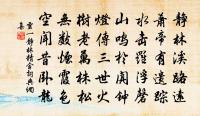 靜林溪路遠
蕭帝有遺蹤
水擊羅浮磬
山鳴於闐鐘
燈傳三世火
樹老萬株松
無數煙霞色
空聞昔臥龍
靈一靜林精舍